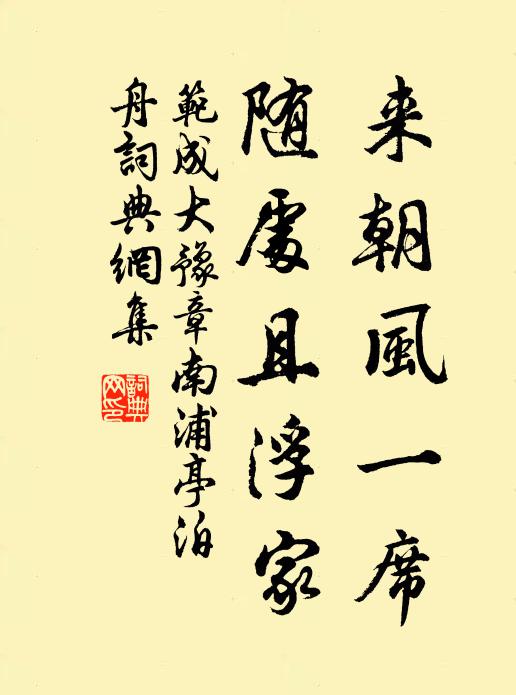 来朝風一席
随處且浮家
範成大豫章南浦亭泊
舟詞典網集
詞典
网印